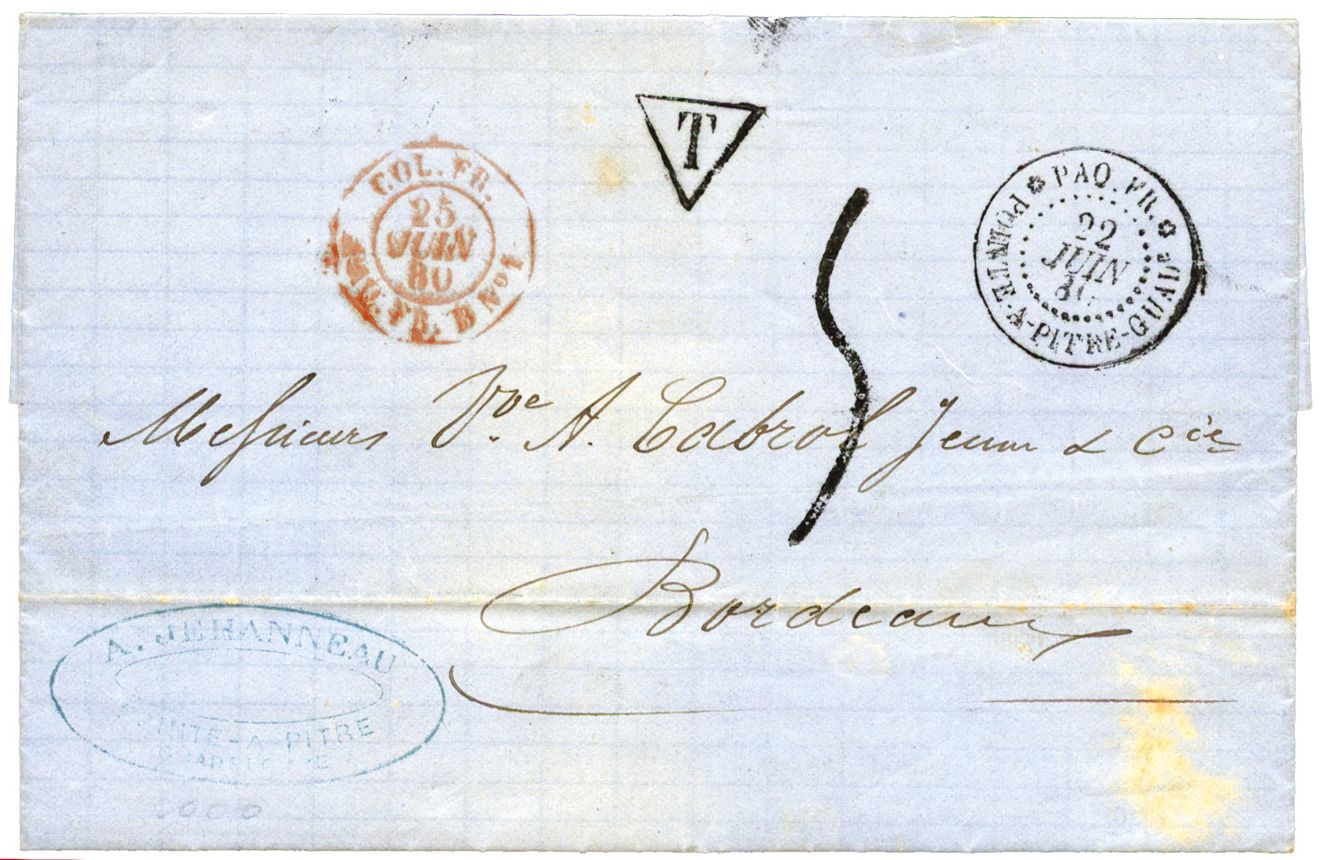 T
COL. FR.
25
JUIN
80
PAQ. FR. B No 1
PAQ. FR.
22
JUIN
80
POINTE-A-PITRE-GUADe
5
Messieurs Vve A. Cabrol Jeune & Cie
Bordeaux
A. JEHANNEAU
POINTE-A-PITRE
GUADELOUPE